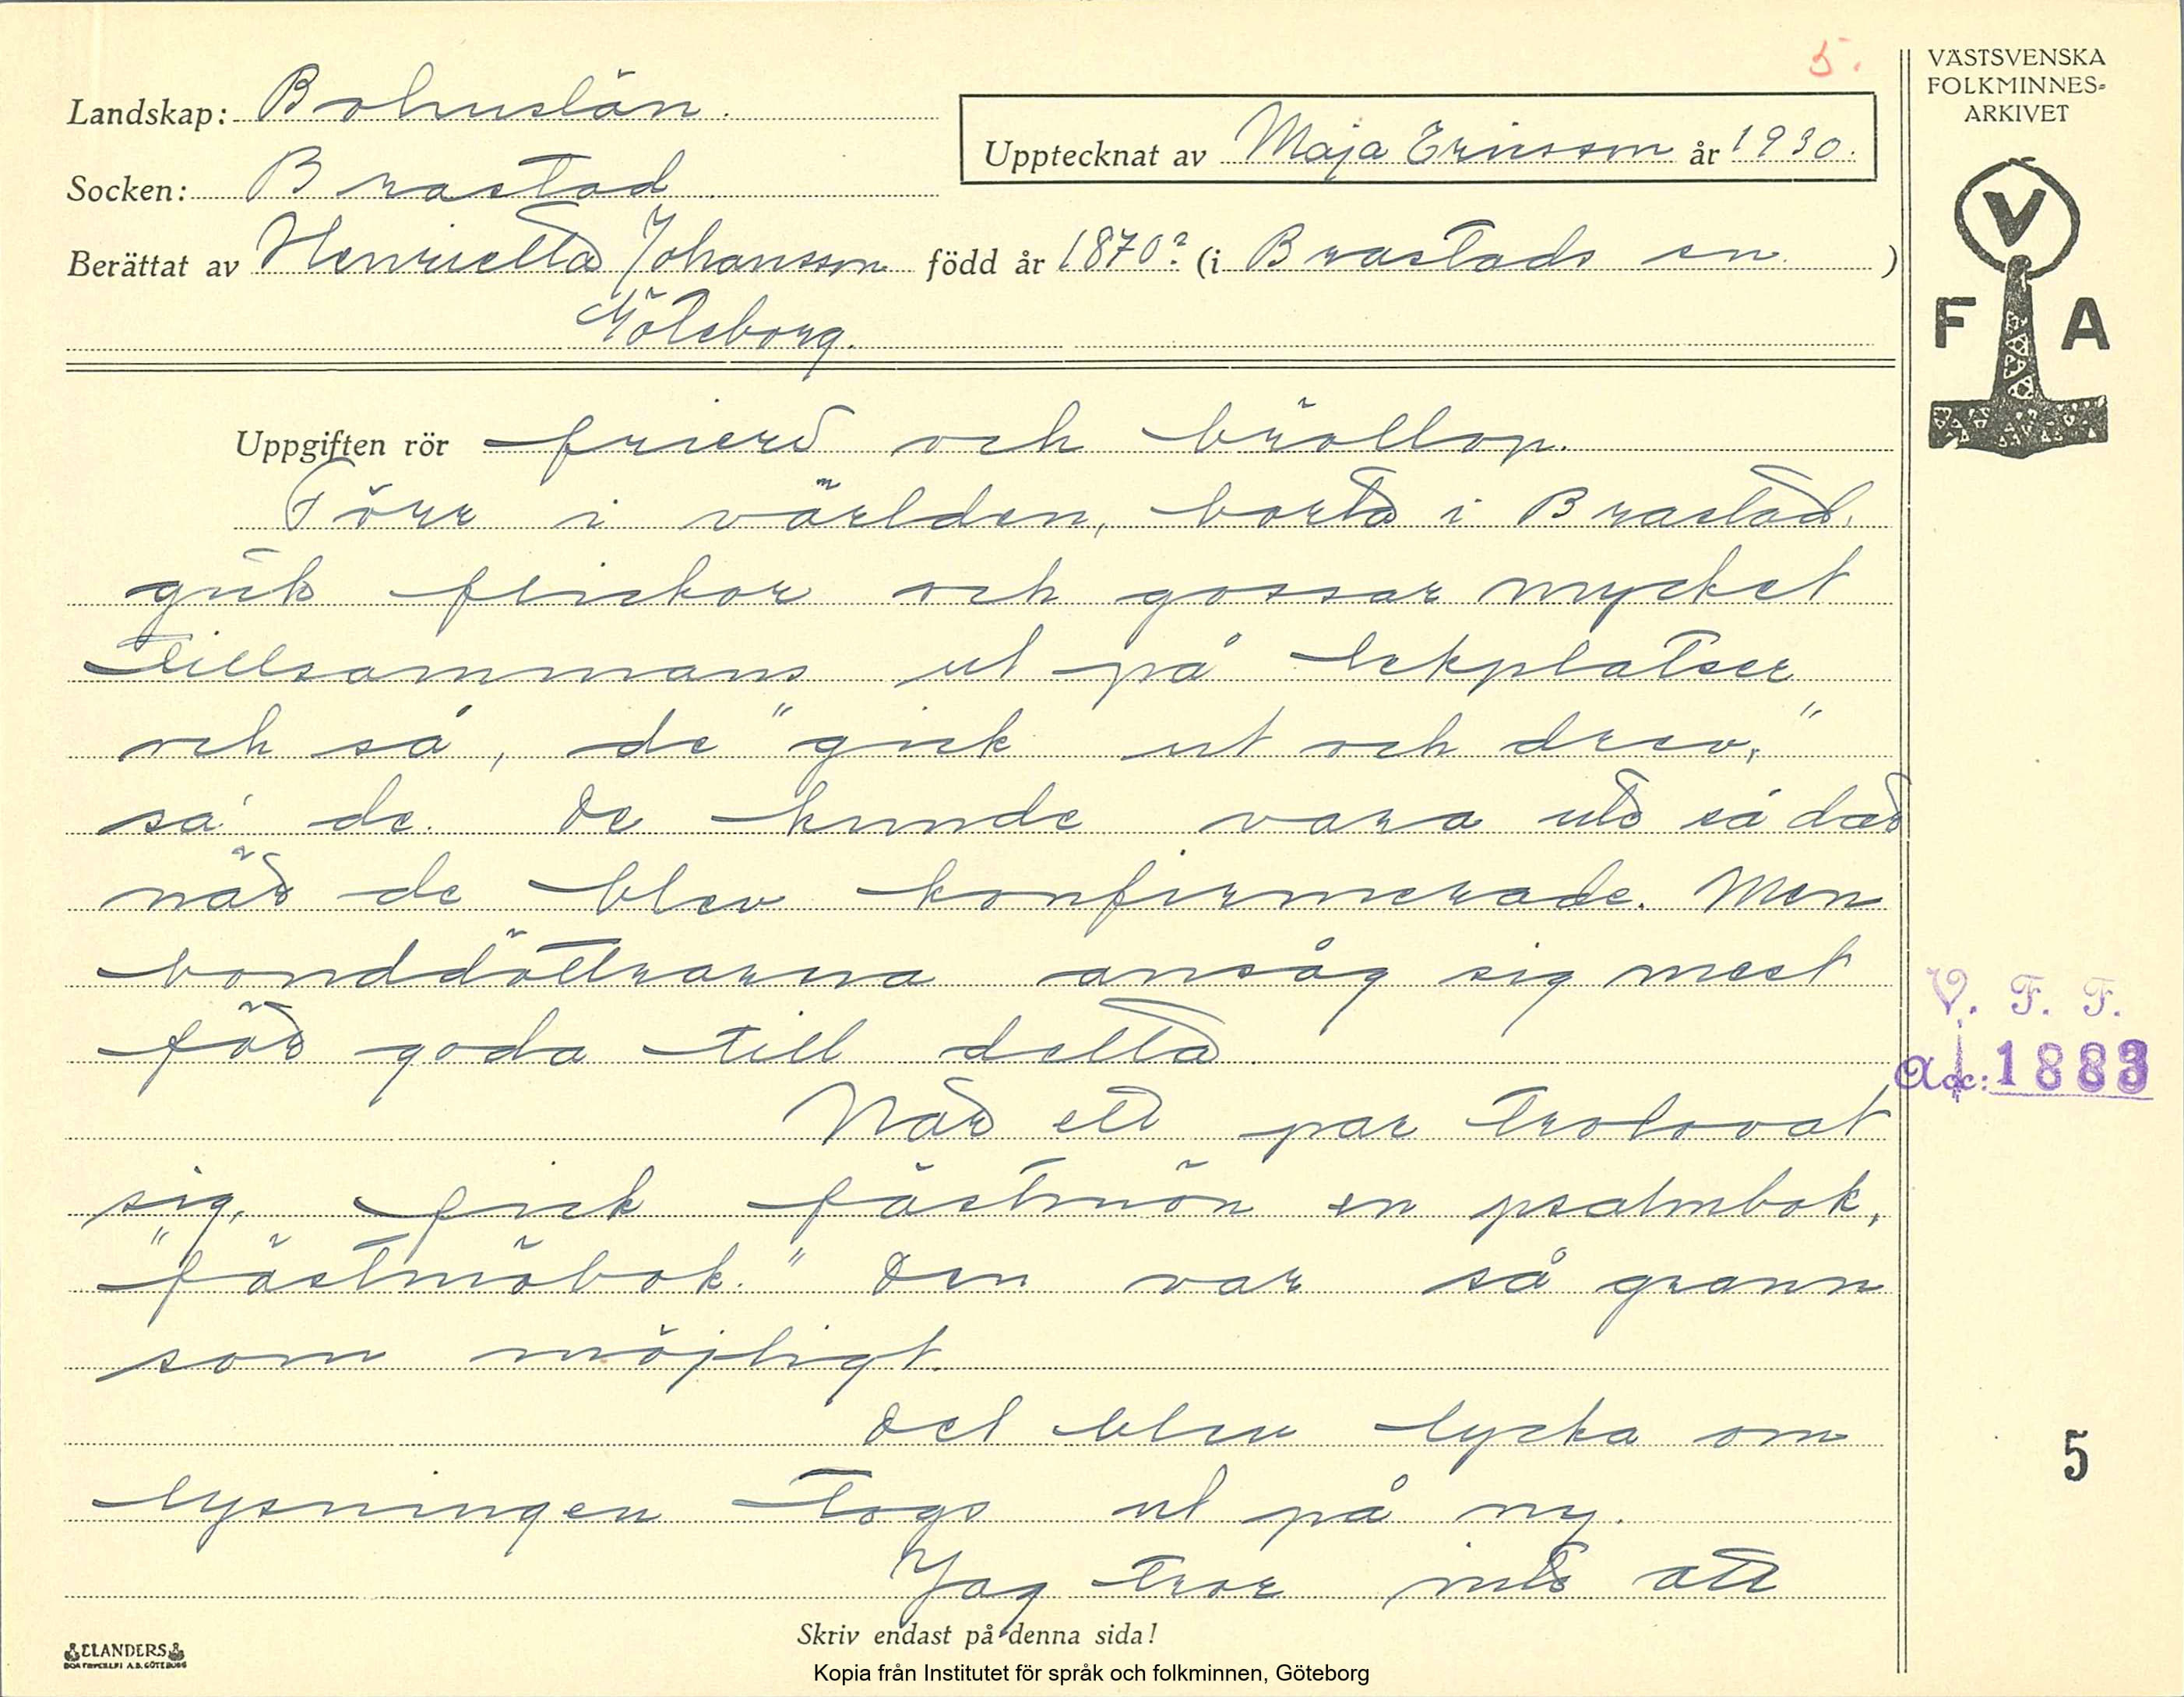 5.
VÄSTSVENSKA
FOLKMINNES-
ARKIVET
Landskap: Bohuslän.
Upptecknat av Maja Ericsson år 1930.
Socken: Brastad
Berättat av Henrietta Johansson född år 1870? (i Brastads sn )
Göteborg.
V
F A
Uppgiften rör frieri och bröllop.
Förr i världen, borta i Brastad,
gick flickor och gossar mycket
tillsammans ut på lekplatser
och så, de "gick ut och drev,"
sa' de. De kunde vara ute så där
när de blev konfirmerade. Men
bonddöttrarna ansåg sig mest
för goda till detta.
När ett par trolovat
sig, fick fästmön en psalmbok,
"fästmöbok." Den var så grann
som möjligt.
Det blev lycka om
lysningen togs ut på ny.
Jag tror inte att
V. F. F.
Acc: 1883
5
Skriv endast på denna sida!
ELANDERS
BOKTRYCKERI A.B. GÖTEBORG
Kopia från Institutet för språk och folkminnen, Göteborg